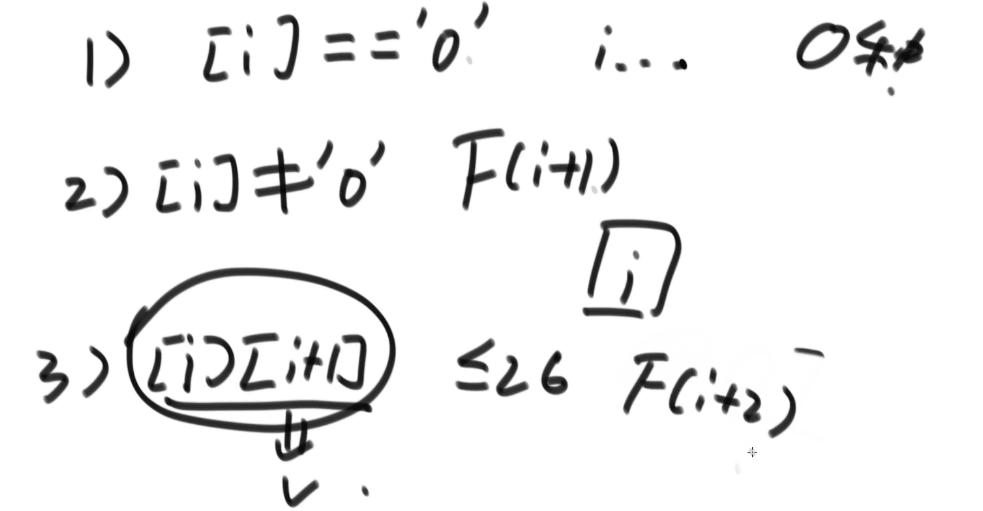 1) [i]=='0' i... 0
2) [i]≠'0' F(i+1)
i
3) [i][i+1] ≤26 F(i+2)